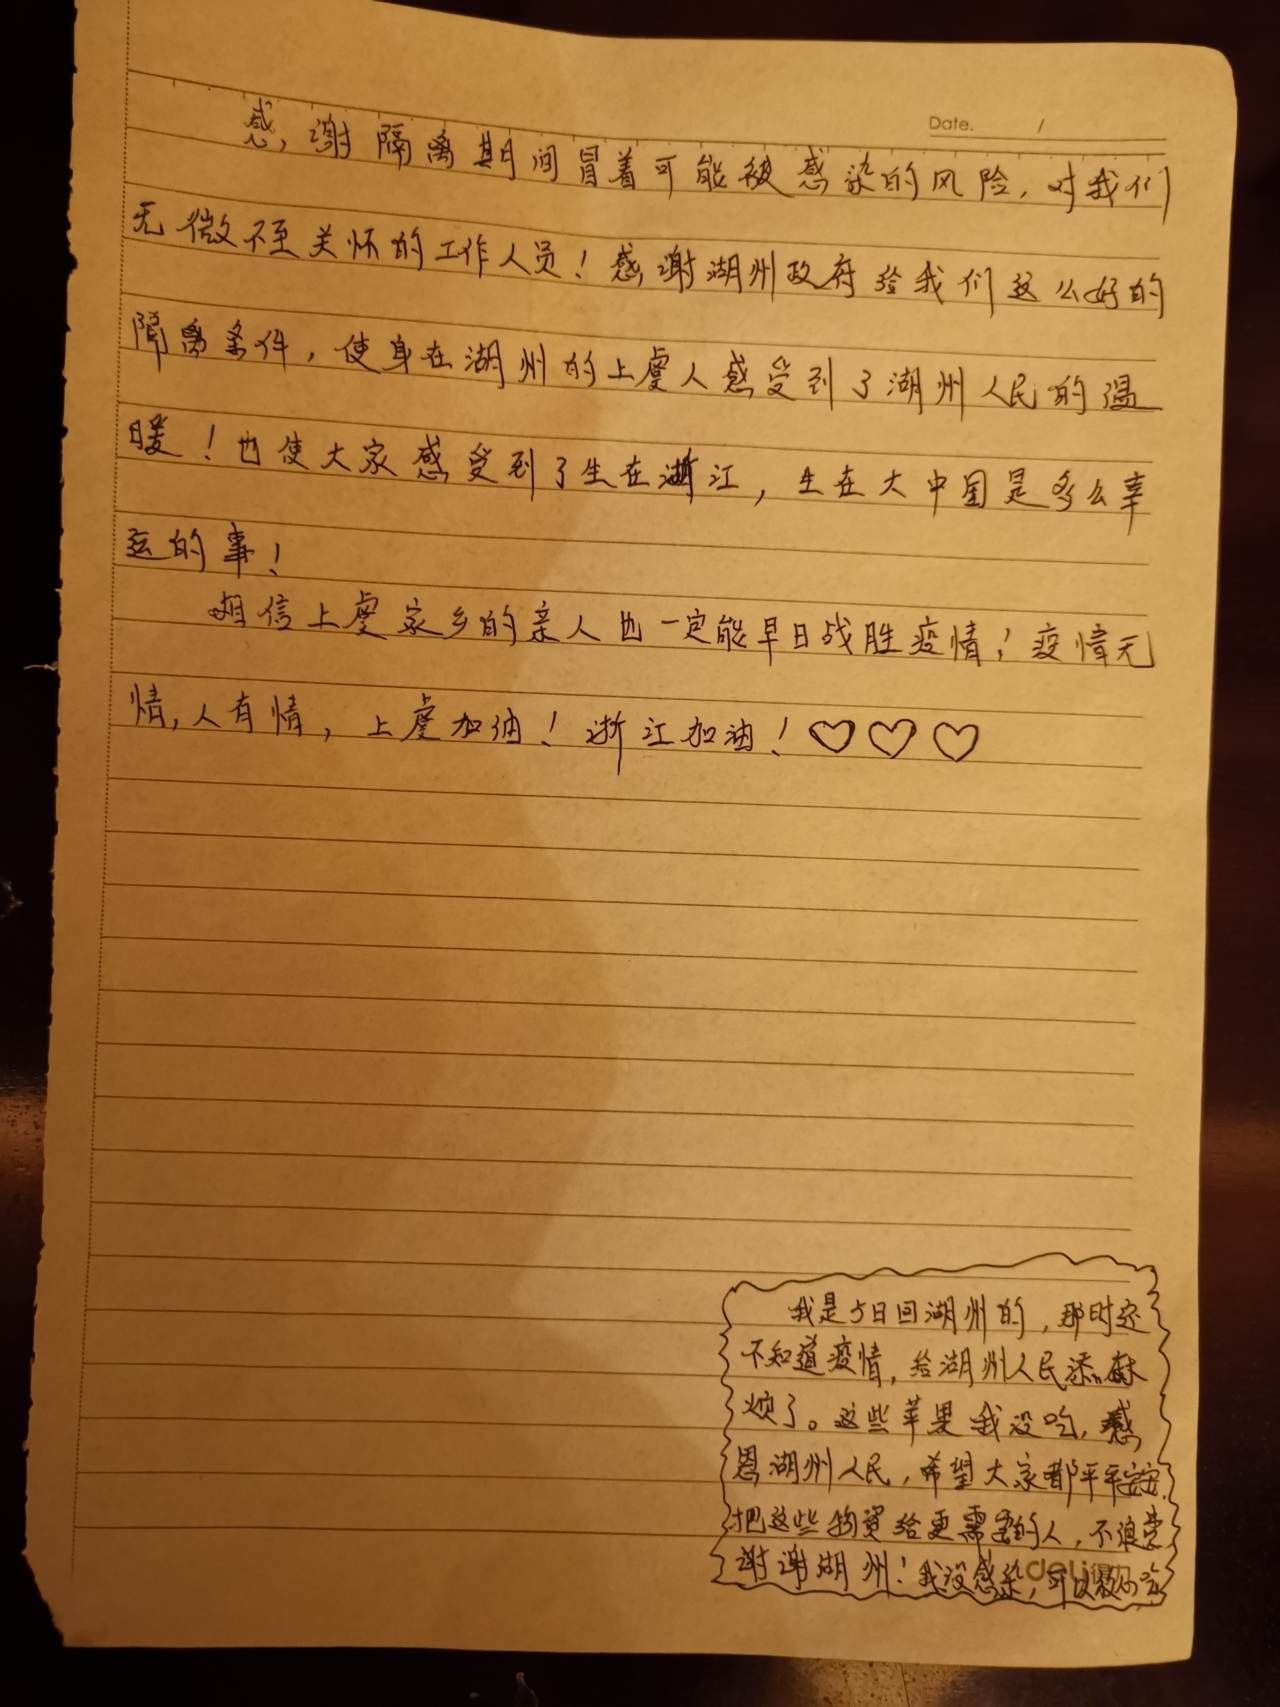 Date. /
感谢隔离期间冒着可能被感染的风险，对我们
无微不至关怀的工作人员！感谢湖州政府给我们这么好的
隔离条件，使身在湖州的上虞人感受到了湖州人民的温
暖！也使大家感受到了生在浙江，生在大中国是多么幸
运的事！
相信上虞家乡的亲人也一定能早日战胜疫情！疫情无
情，人有情，上虞加油！浙江加油！♡♡♡
我是5日回湖州的，那时还
不知道疫情，给湖州人民添麻
烦了。这些苹果我没吃，感
恩湖州人民，希望大家都平平安安，
把这些物资给更需要的人，不浪费
谢谢湖州！我没感染，可以放心吃
deli得力